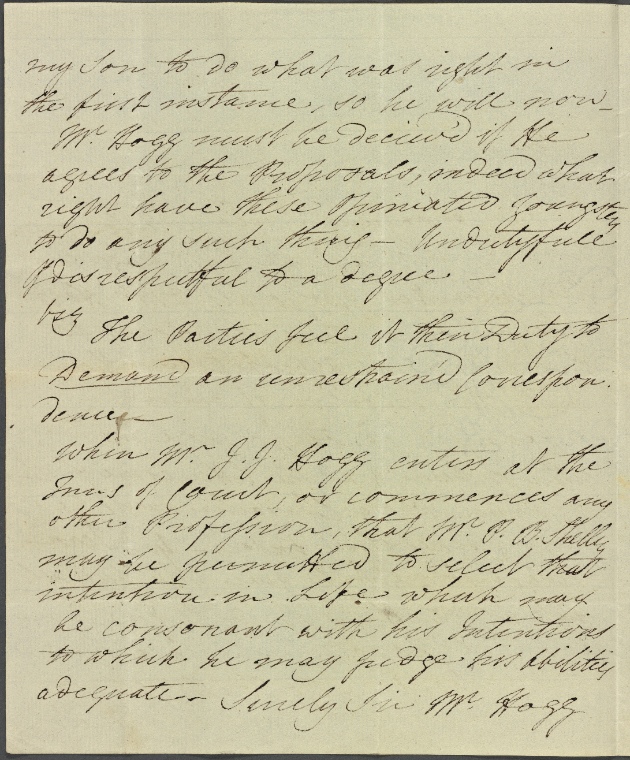 my Son to do what was right in
the first instance, so he will now_
Mr. Hogg must be deciev'd if He
agrees to the Proposals, indeed what
right have these Opiniated Youngsters
to do any such thing – Undutyfull
& disrespectful to a degree –
viz
The Parties feel it their Duty to
Demand an unrestrain'd Correspon.
dence
When Mr. J. J. Hogg enters at the
Inns of Court, or commences any
other Profession, that Mr. P. B. Shelley
may be permitted to select that
intention in Life which may
be consonant with his Intentions
to which he may judge his abilities
adequate – Surely Sir Mr. Hogg